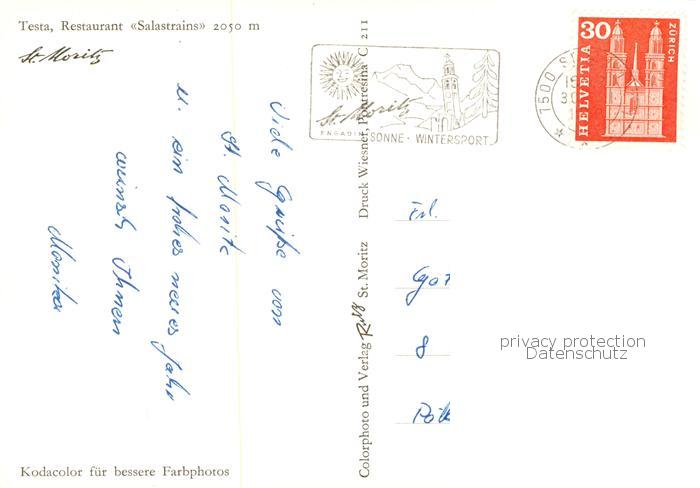 Testa, Restaurant «Salastrains» 2050 m
St. Moritz
Viele Grüße von
St. Moritz
u. ein frohes neues Jahr
wünscht Ihnen
Monika
Kodacolor für bessere Farbphotos
Colorphoto und Verlag St. Moritz Druck Wiesner, Pontresina C 211
St. Moritz
ENGADIN
SONNE · WINTERSPORT
7500
30
HELVETIA
ZÜRICH
Frl.
8
privacy protection
Datenschutz